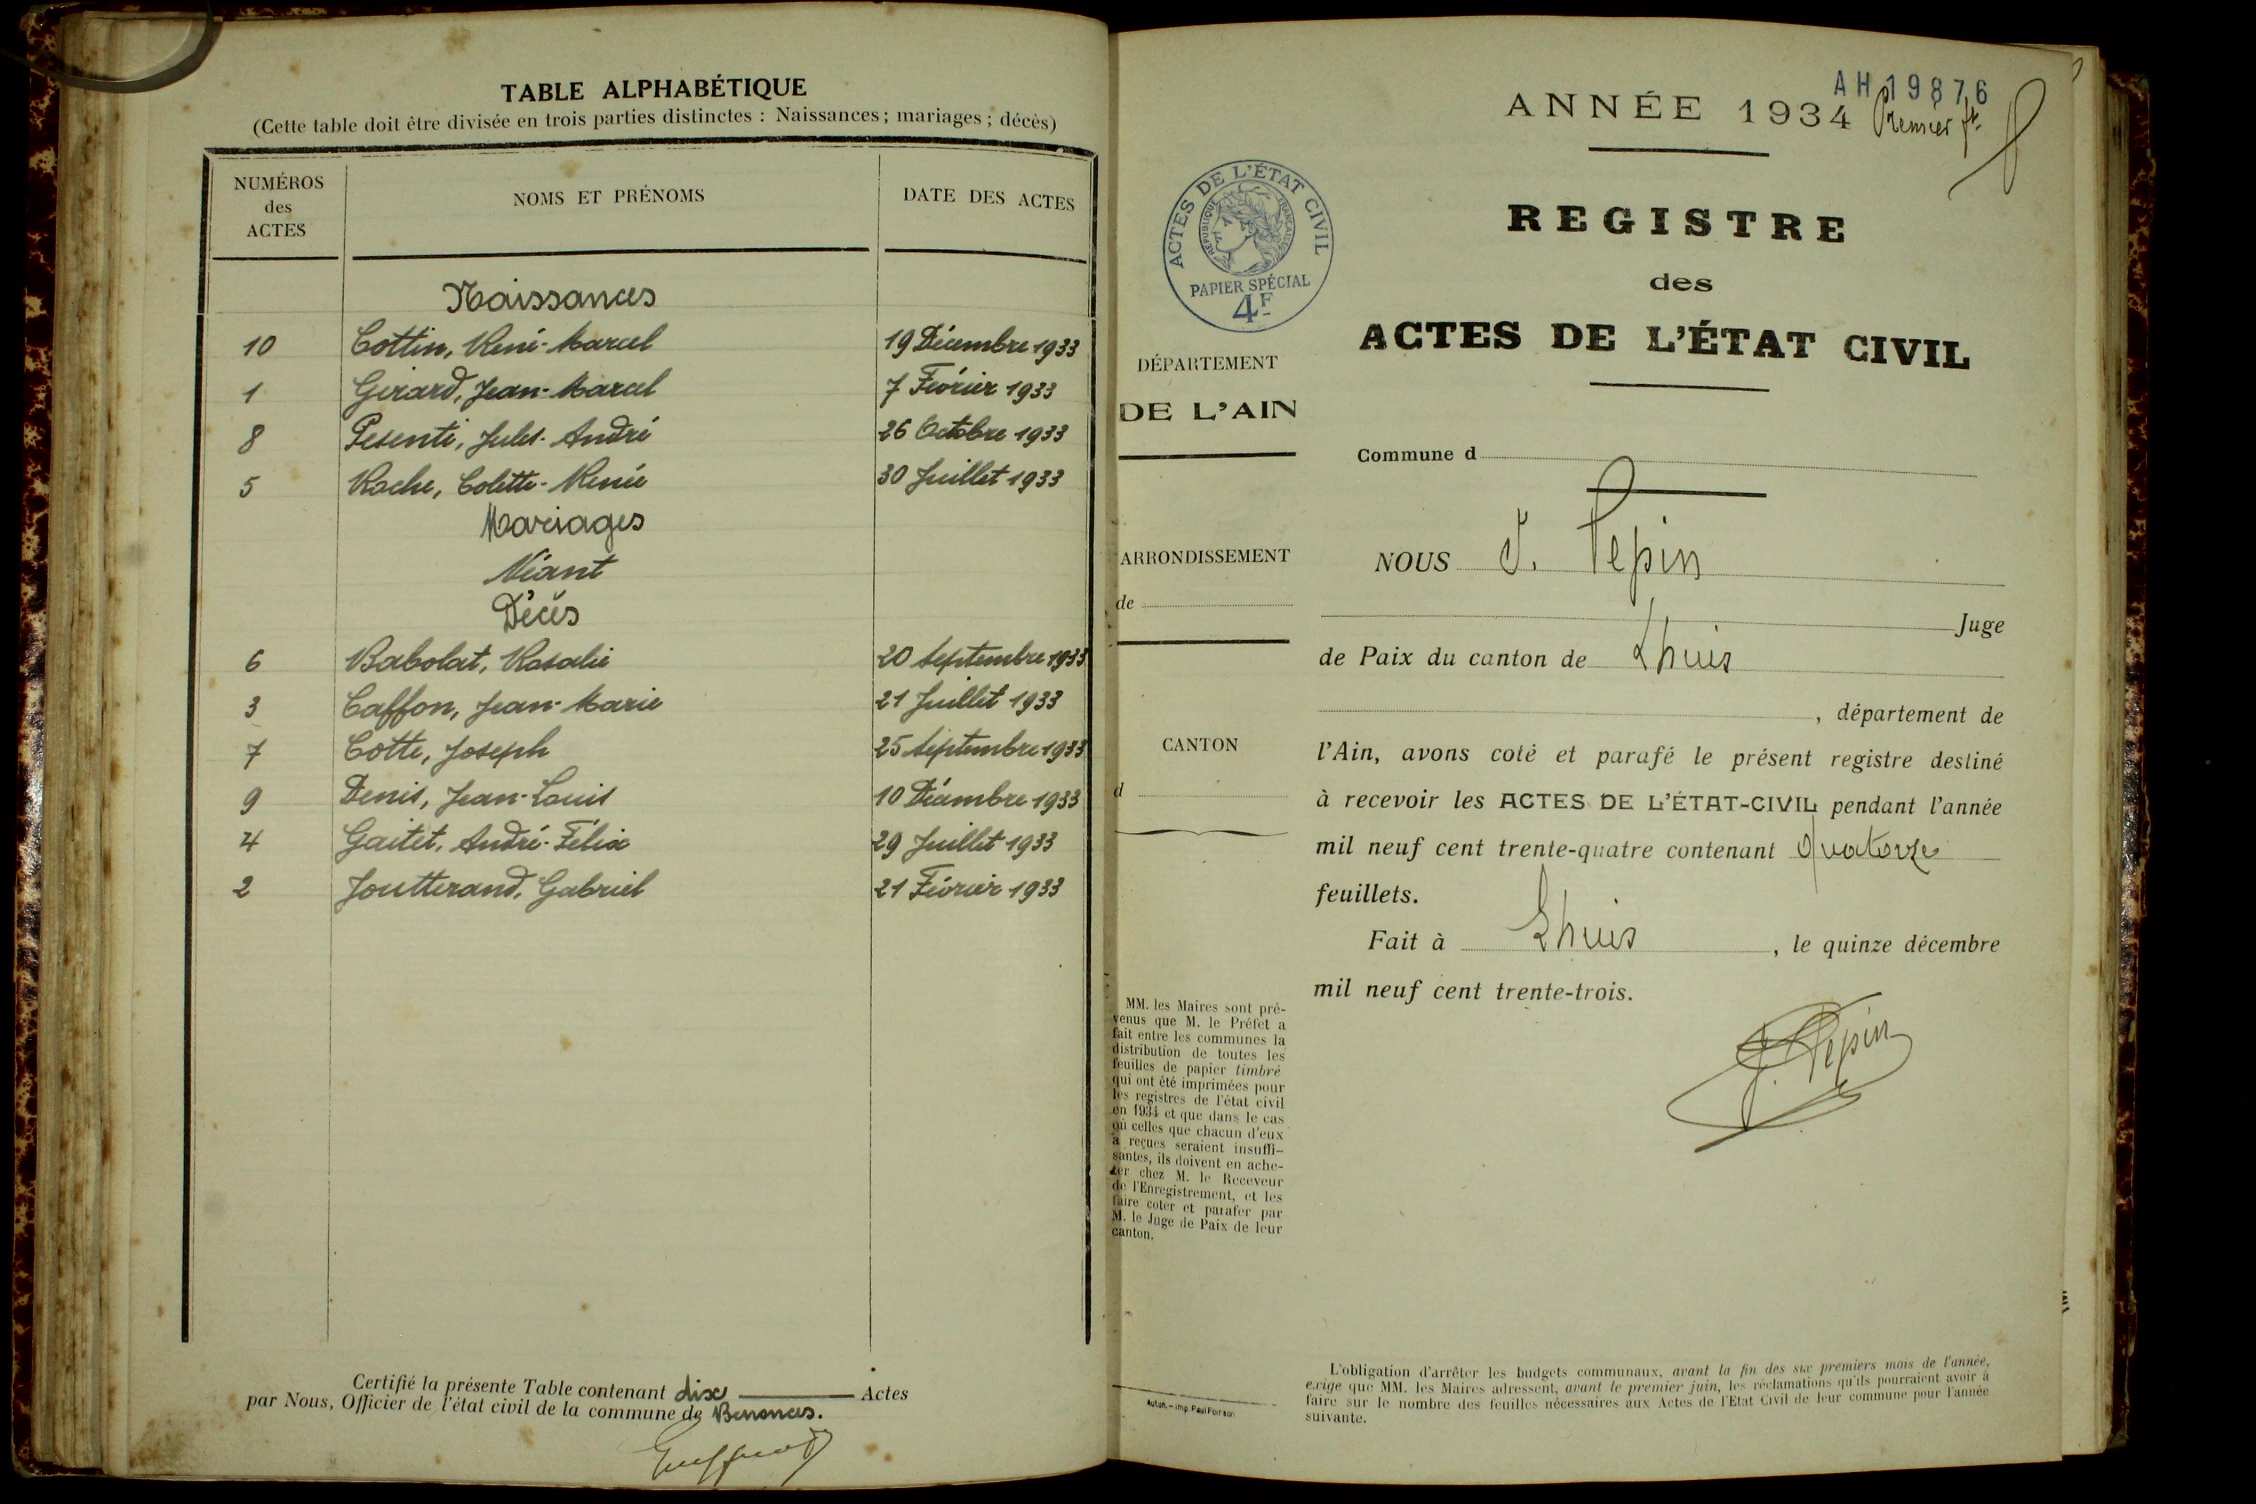 TABLE ALPHABÉTIQUE
(Cette table doit être divisée en trois parties distinctes : Naissances ; mariages ; décès)
NUMÉROS des ACTES
NOMS ET PRÉNOMS
DATE DES ACTES
Naissances
10 Cottin, René-Marcel 19 Décembre 1933
1 Girard, Jean-Marcel 7 Février 1933
8 Pesenti, Jules-André 26 Octobre 1933
5 Roche, Colette-Renée 30 Juillet 1933
Mariages
Néant
Décès
6 Babolat, Rosalie 20 Septembre 1933
3 Caffon, Jean-Marie 21 Juillet 1933
7 Cotte, Joseph 25 Septembre 1933
9 Denis, Jean-Louis 10 Décembre 1933
4 Gaitet, André-Félix 29 Juillet 1933
2 Joutterand, Gabriel 21 Février 1933
Certifié la présente Table contenant dix Actes
par Nous, Officier de l'état civil de la commune de Benonces.
AH 19876
ANNÉE 1934 Premier ft.
ACTES DE L'ÉTAT CIVIL
RÉPUBLIQUE FRANÇAISE
PAPIER SPÉCIAL
4F
REGISTRE
des
ACTES DE L'ÉTAT CIVIL
DÉPARTEMENT
DE L'AIN
ARRONDISSEMENT
de
CANTON
d
MM. les Maires sont pré-
venus que M. le Préfet a
fait entre les communes la
distribution de toutes les
feuilles de papier timbré
qui ont été imprimées pour
les registres de l'état civil
en 1934 et que dans le cas
où celles que chacun d'eux
a reçues seraient insuffi-
santes, ils doivent en ache-
ter chez M. le Receveur
de l'Enregistrement, et les
faire coter et parafer par
M. le Juge de Paix de leur
canton.
Autun. - Imp. Paul Poirson
Commune d
NOUS J. Pepin
Juge
de Paix du canton de Lhuis
, département de
l'Ain, avons coté et parafé le présent registre destiné
à recevoir les ACTES DE L'ÉTAT-CIVIL pendant l'année
mil neuf cent trente-quatre contenant quatorze
feuillets.
Fait à Lhuis, le quinze décembre
mil neuf cent trente-trois.
J. Pepin
L'obligation d'arrêter les budgets communaux, avant la fin des six premiers mois de l'année,
exige que MM. les Maires adressent, avant le premier juin, les réclamations qu'ils pourraient avoir à
faire sur le nombre des feuilles nécessaires aux Actes de l'Etat Civil de leur commune pour l'année
suivante.